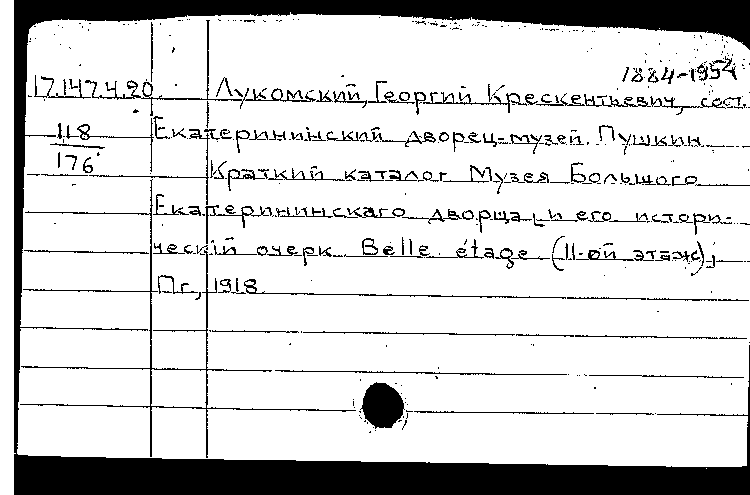 1884-1954
17.147.4.20. Лукомский, Георгий Крескентьевич, сост.
118 Екатерининский дворец-музей. Пушкин
176 Краткий каталог Музея Большого
Екатерининскаго дворца и его истори-
ческій очерк. Belle étage (II-ой этаж);
Пг., 1918